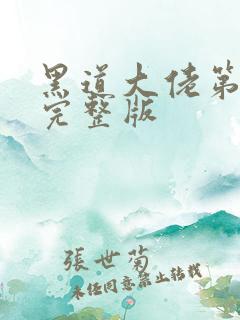 黑道大佬第
完整版
張世菊
未经同意禁止转载